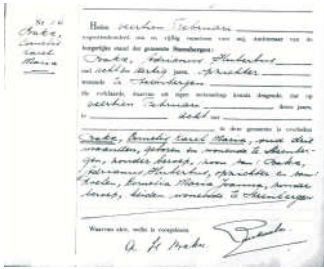 Nr 14
Braka,
Cornelis
Karel
Maria
Heden veertien Februari
negentienhonderd een en vijftig verscheen voor mij, Ambtenaar van de
burgerlijke stand der gemeente Steenbergen:
Braka, Adrianus Hubertus,
oud acht en dertig jaren, opzichter
wonende te Steenbergen
die verklaarde, waarvan uit eigen wetenschap kennis dragende, dat op
veertien Februari dezes jaars,
te acht uur
in deze gemeente is overleden
Braka, Cornelis Karel Maria, oud drie
maanden, geboren en wonende te Steenber-
gen, zonder beroep, zoon van: Braka,
Adrianus Hubertus, opzichter en van:
Cornelia Maria Joanna, zonder
beroep, beiden wonende te Steenbergen
Waarvan akte, welke is voorgelezen.